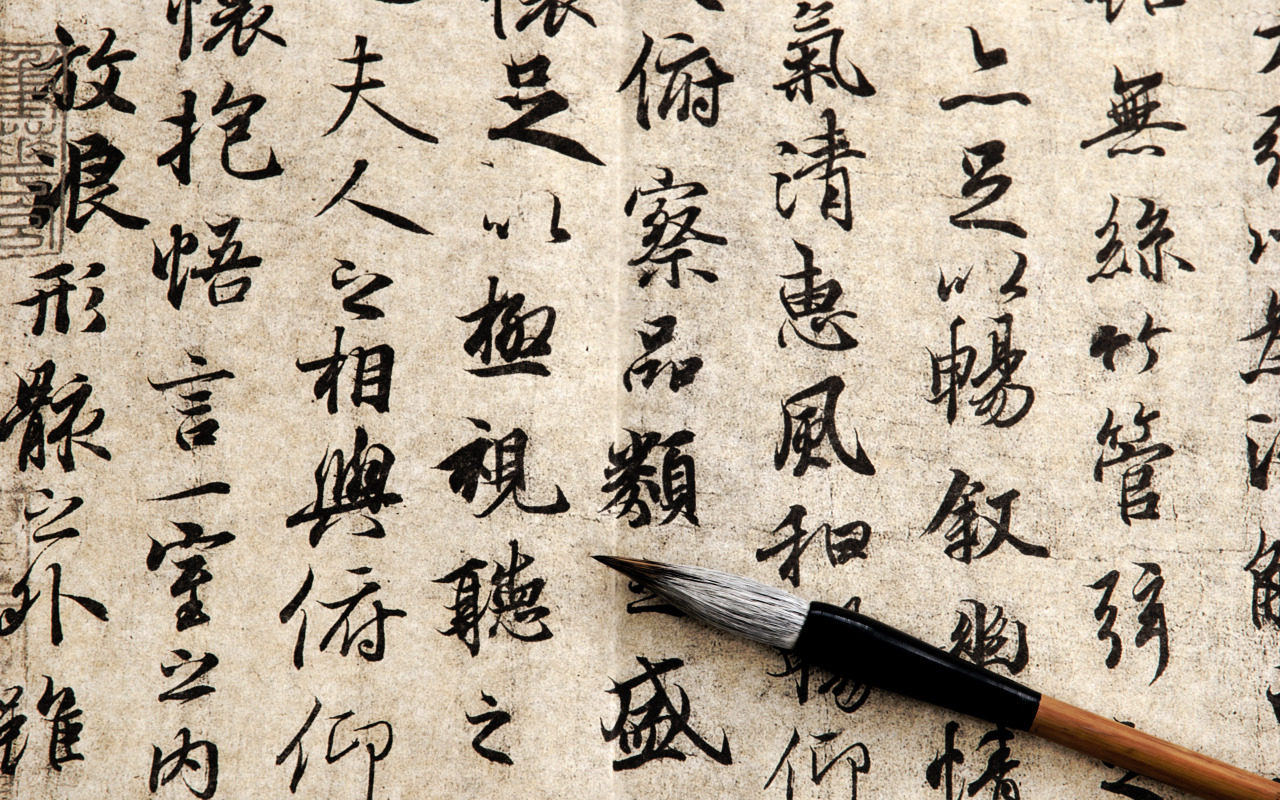 無絲竹管弦之
亦足以暢叙幽情
氣清惠風和暢仰
俯察品類之盛
懷足以極視聽之
夫人之相與俯仰
懷抱悟言一室之内
放浪形骸之外雖